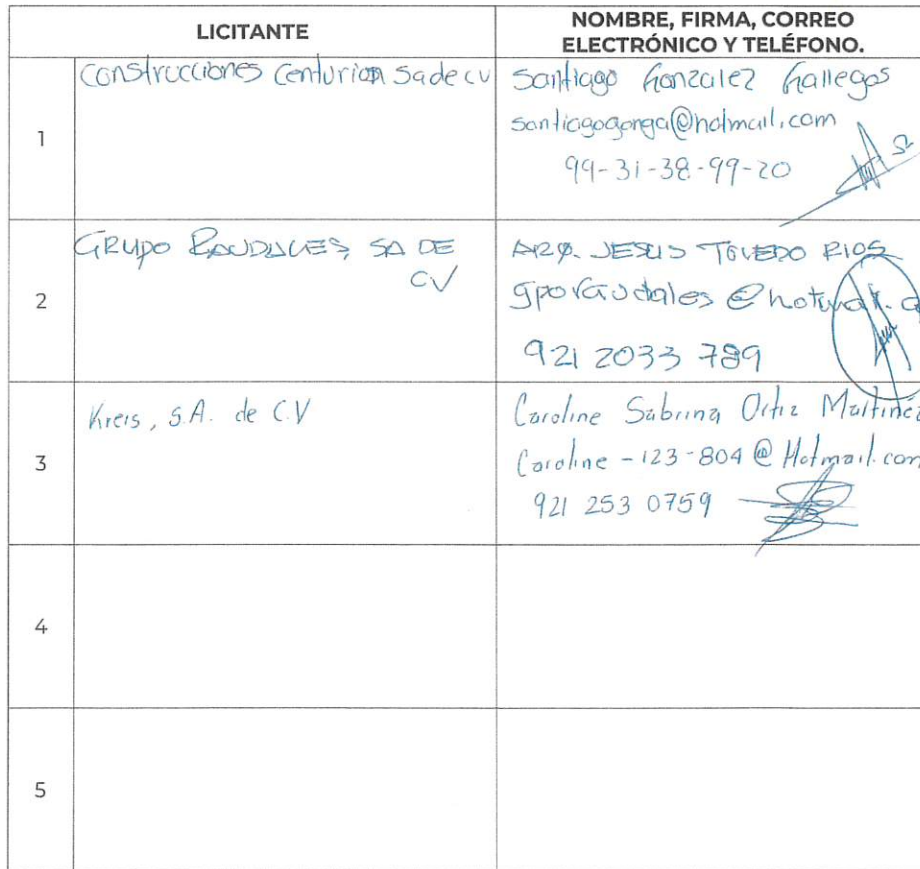 LICITANTE
NOMBRE, FIRMA, CORREO
ELECTRÓNICO Y TELÉFONO.
1
Construcciones Centurion Sa de cv
Santiago Gonzalez Gallegos
santiagogonga@hotmail.com
99-31-38-99-20
2
GRUPO RAUDALES, SA DE
CV
ARQ. JESUS TOLEDO RIOS
gporaudales@hotmail.c
921 2033 789
3
Kreis, S.A. de C.V
Caroline Sabrina Ortiz Martinez
Caroline-123-804@Hotmail.com
921 253 0759
4
5